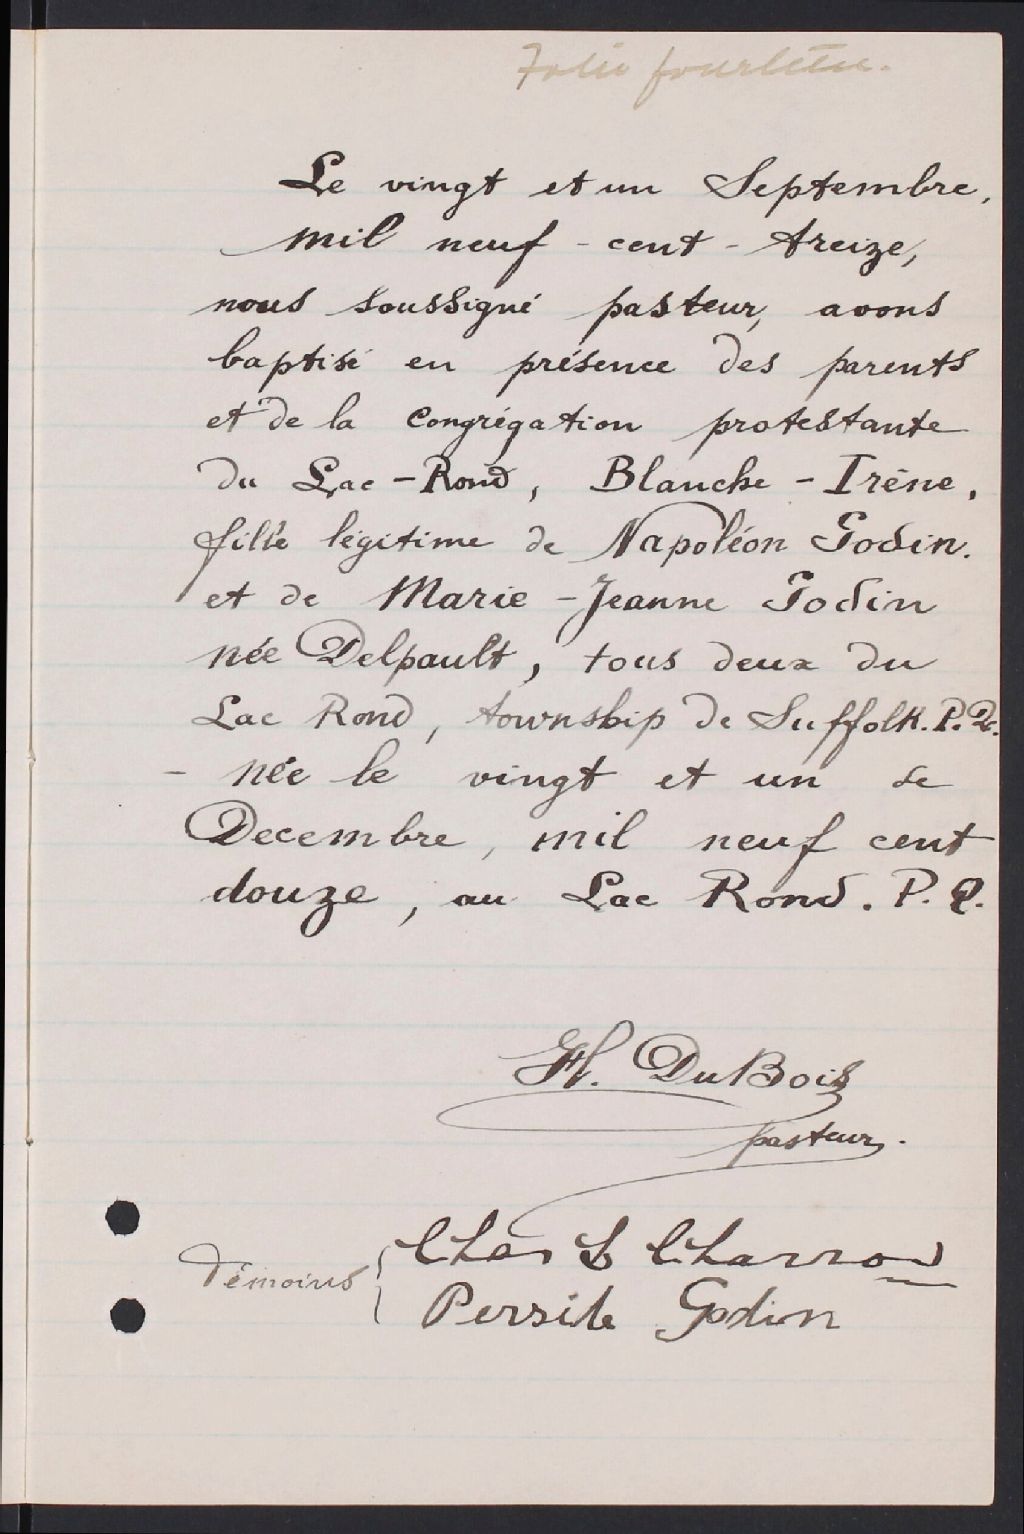 Folio fourteen.
Le vingt et un Septembre,
mil neuf-cent-treize,
nous soussigné pasteur, avons
baptisé en présence des parents
et de la congrégation protestante
du Lac-Rond, Blanche-Irène,
fille légitime de Napoléon Godin.
et de Marie-Jeanne Godin
née Delpault, tous deux du
Lac Rond, township de Suffolk. P. Q.
- née le vingt et un de
Decembre, mil neuf cent
douze, au Lac Rond. P. Q.
H. DuBois
pasteur.
Témoins { Chas Charron
Persile Godin